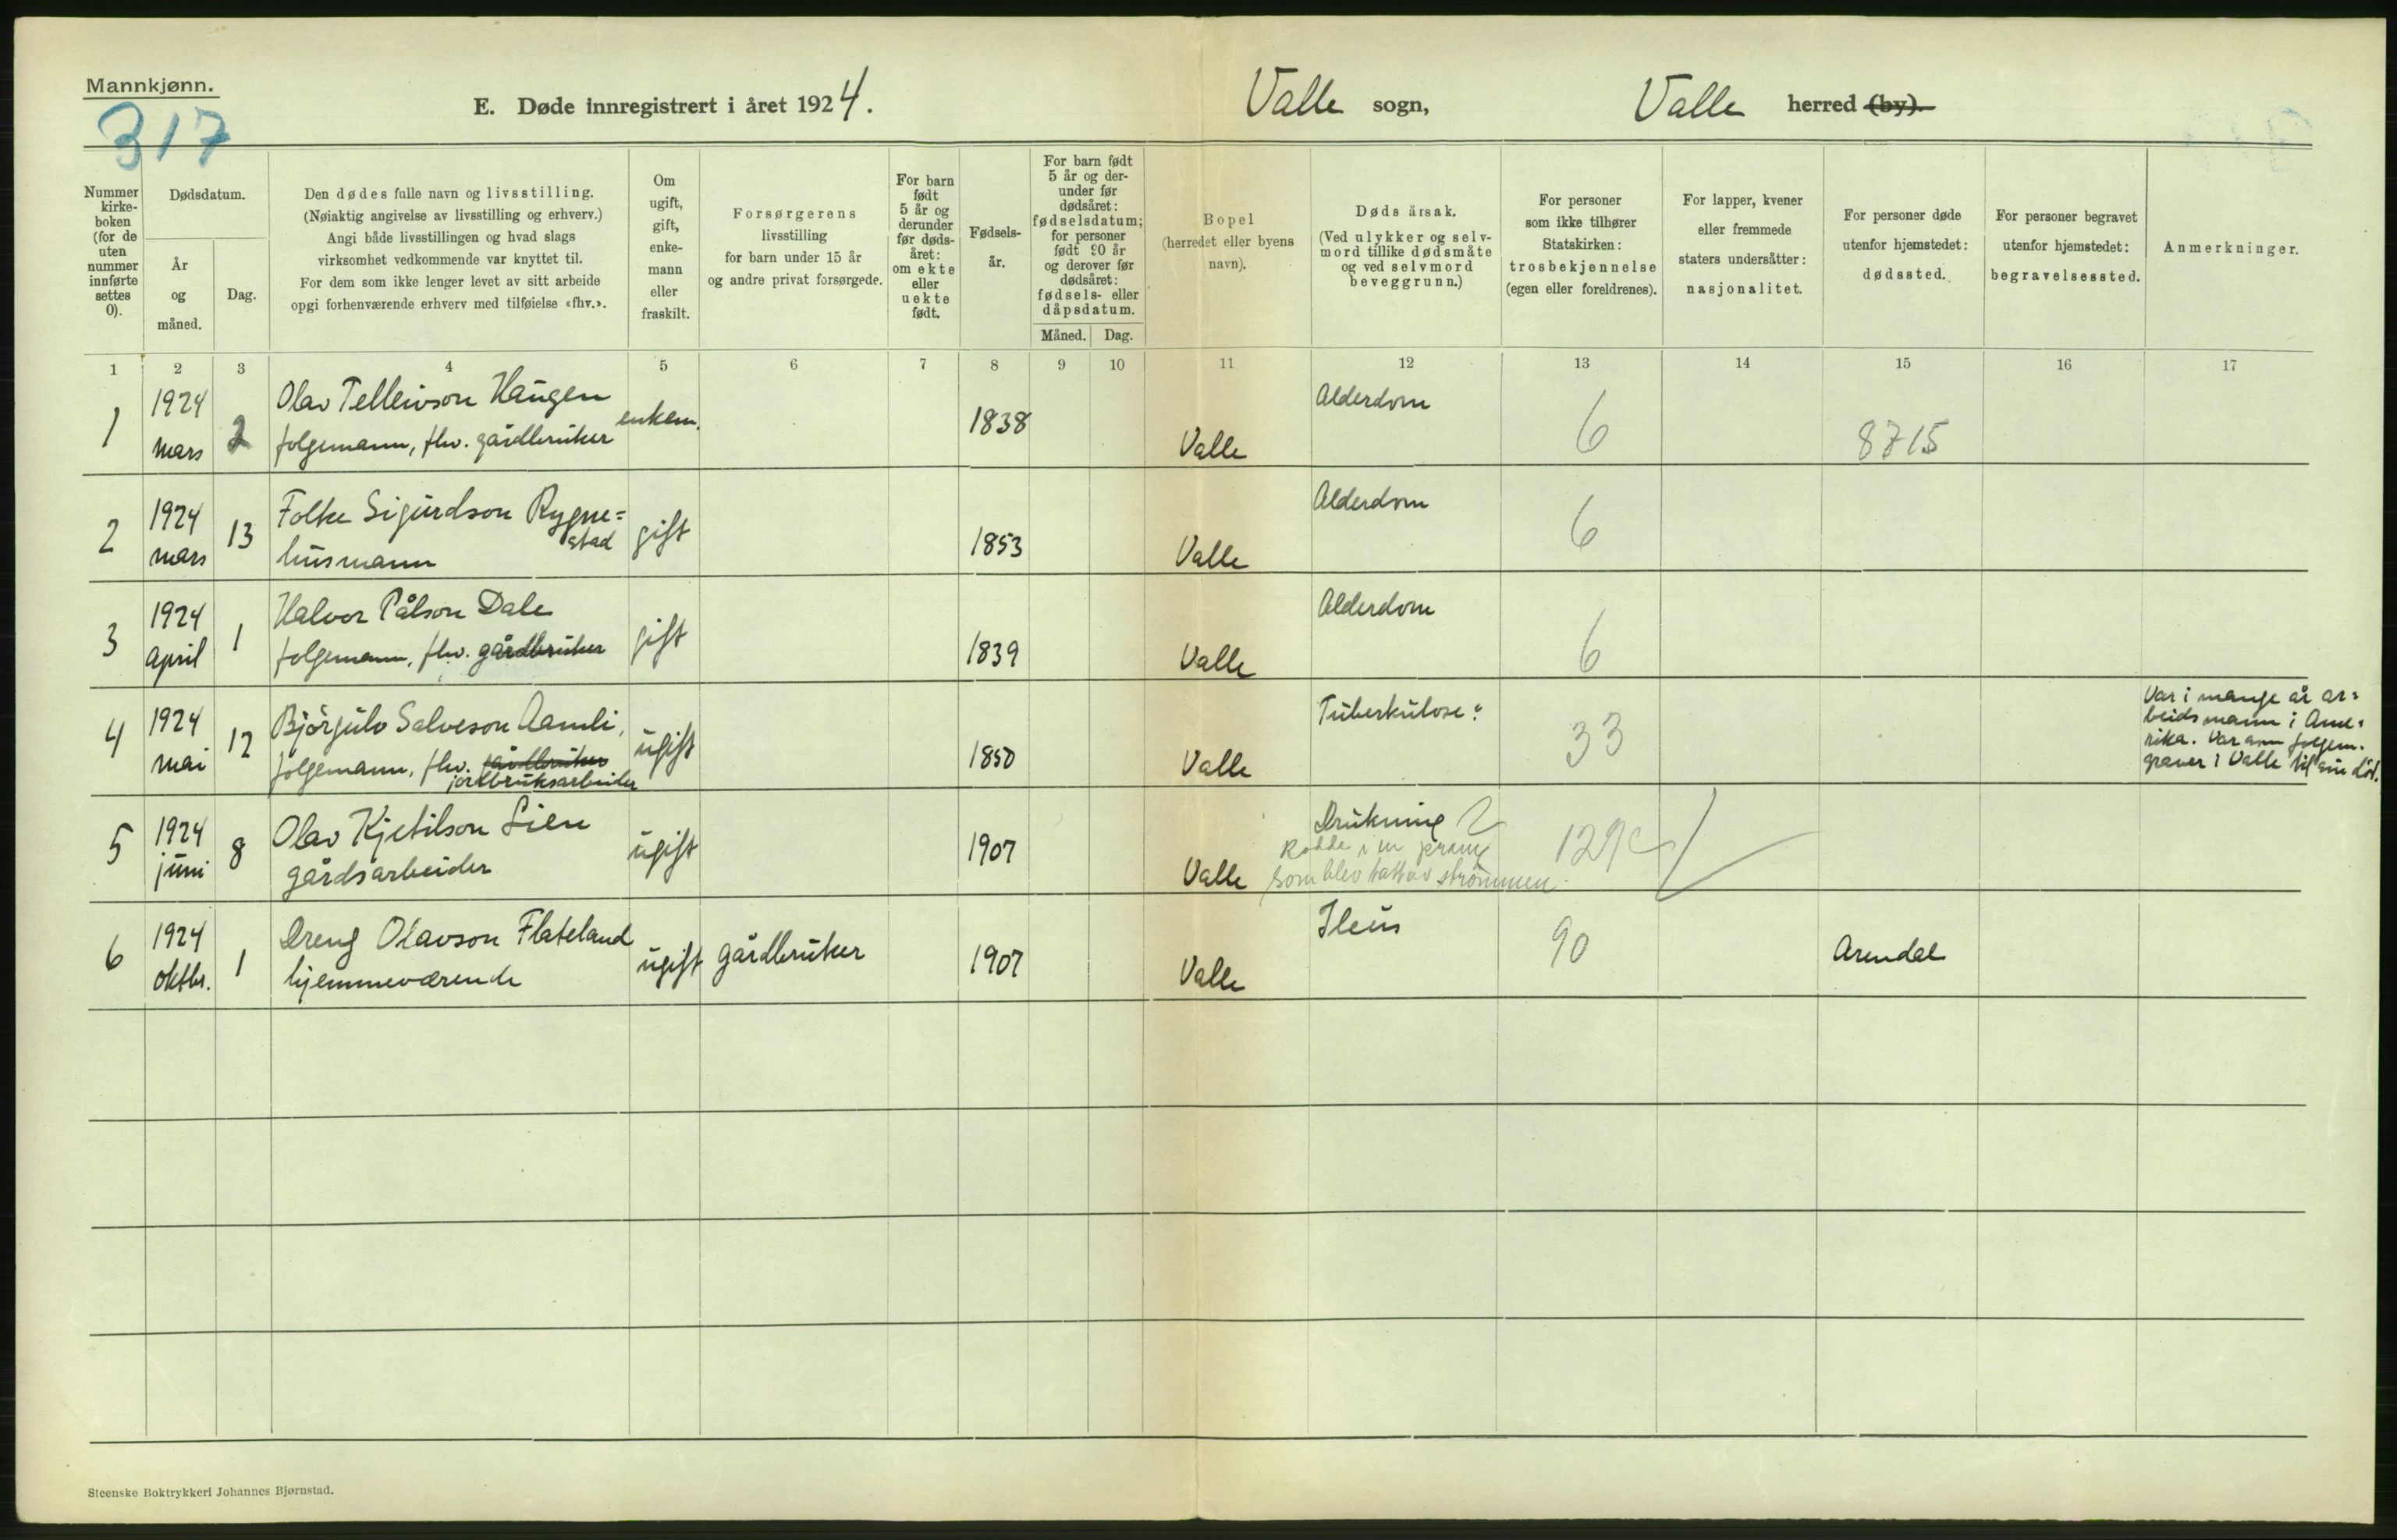 Mannkjønn.
317
E. Døde innregistrert i året 1924.
Valle sogn,
Valle herred (by).
Nummer
kirke-
boken
(for de
uten
nummer
innførte
settes
0).
Dødsdatum.
År
og
måned.
Dag.
Den dødes fulle navn og livsstilling.
(Nøiaktig angivelse av livsstilling og erhverv.)
Angi både livsstillingen og hvad slags
virksomhet vedkommende var knyttet til.
For dem som ikke lenger levet av sitt arbeide
opgi forhenværende erhverv med tilføielse «fhv.».
Om
ugift,
gift,
enke-
mann
eller
fraskilt.
Forsørgerens
livsstilling
for barn under 15 år
og andre privat forsørgede.
For barn
født
5 år og
derunder
før døds-
året:
om ekte
eller
uekte
født.
Fødsels-
år.
For barn født
5 år og der-
under før
dødsåret:
fødselsdatum;
for personer
født 90 år
og derover før
dødsåret:
fødsels- eller
dåpsdatum.
Måned. Dag.
Bopel
(herredet eller byens
navn).
Dødsårsak.
(Ved ulykker og selv-
mord tillike dødsmåte
og ved selvmord
beveggrunn.)
For personer
som ikke tilhører
Statskirken:
trosbekjennelse
(egen eller foreldrenes).
For lapper, kvener
eller fremmede
staters undersåtter:
nasjonalitet.
For personer døde
utenfor hjemstedet:
dødssted.
For personer begravet
utenfor hjemstedet:
begravelsessted.
Anmerkninger.
1 2 3 4 5 6 7 8 9 10 11 12 13 14 15 16 17
1 1924 mars 2 Olav Telleivson Haugen
folgemann, fhv. gårdbruker enkem. 1838 Valle Alderdom 6 8715
2 1924 mars 13 Folke Sigurdson Rygne=
stad
husmann gift 1853 Valle Alderdom 6
3 1924 april 1 Halvor Pålson Dale
folgemann, fhv. gårdbruker gift 1839 Valle Alderdom 6
4 1924 mai 12 Bjørgulv Salveson Aamli,
folgemann, fhv. gårdbruker
jordbruksarbeider ugift 1850 Valle Tuberkulose 33
Var i mange år ar=
beidsmann i Ame=
rika. Var som folgem.
graver i Valle til sin död.
5 1924 juni 8 Olav Kjetilson Lien
gårdsarbeider ugift 1907 Valle Drukning
Rodde i en pram
som blev tatt av strømmen. 129c
6 1924 oktbr. 1 Dreng Olavson Flateland
hjemmeværende ugift gårdbruker 1907 Valle Ileus 90 Arendal
Steenske Boktrykkeri Johannes Bjørnstad.